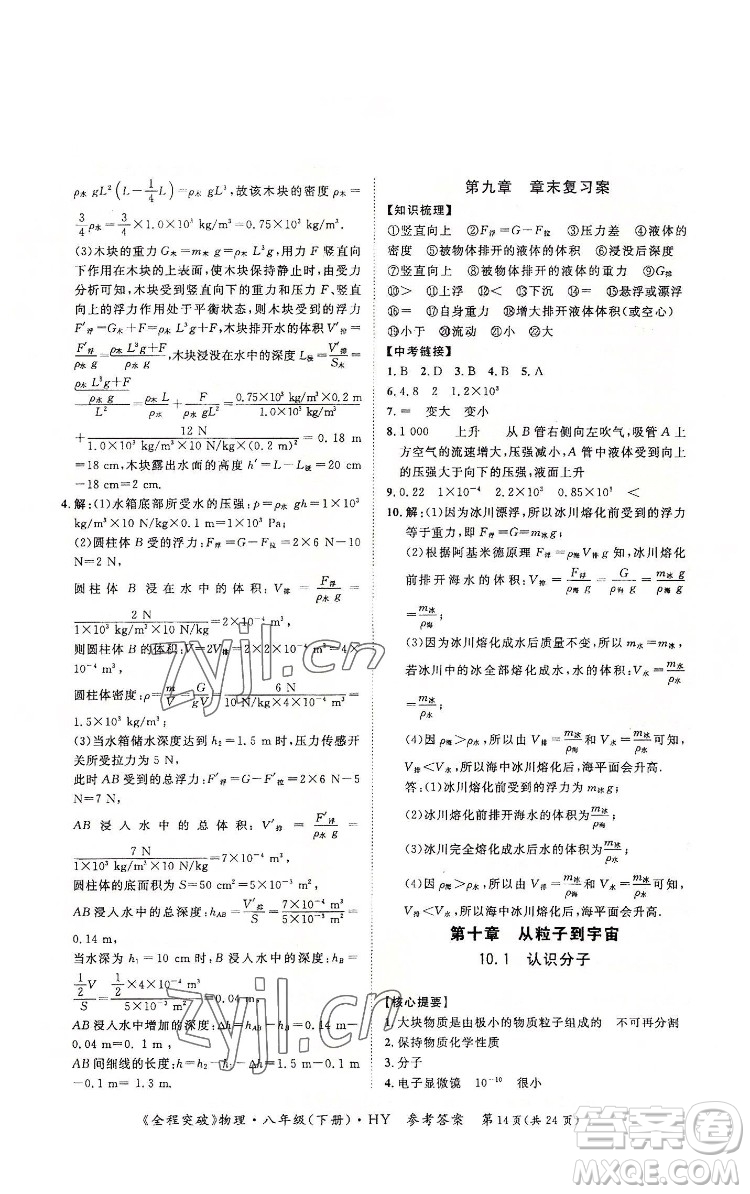 ρ水 gL²(L－1/4 L)＝ρ木 gL³，故该木块的密度 ρ木＝
3/4 ρ水＝3/4×1.0×10³ kg/m³＝0.75×10³ kg/m³。
(3)木块的重力 G木＝m木 g＝ρ木 L³g，用力 F 竖直向
下作用在木块上表面，使木块保持静止时，由受力
分析可知，木块受到竖直向下的重力和力 F、竖直
向上的浮力作用处于平衡状态，则木块受到的浮力
F′浮＝G木＋F＝ρ木 L³g＋F，木块排开水的体积 V′排＝
F′浮/(ρ水 g)，木块浸没在水中的深度 L浸＝V′排/S木＝
((ρ木 L³g＋F)/(ρ水 g))/L²＝ρ木 L/ρ水＋F/(ρ水 gL²)＝(0.75×10³ kg/m³×0.2 m)/(1.0×10³ kg/m³)
＋12 N/(1.0×10³ kg/m³×10 N/kg×(0.2 m)²)＝0.18 m
＝18 cm，木块露出水面 h′＝L－L浸＝20 cm－18 cm
＝2 cm。
4.解：(1)水箱底部所受水的压强：p＝ρ水 gh＝1×10³
kg/m³×10 N/kg×1 m＝1×10⁴ Pa；
(2)圆柱体 B 受的浮力：F浮＝G－F拉＝2×6 N－10 N
＝2 N，
圆柱体 B 浸在水中的体积：V排＝F浮/(ρ水 g)＝
2 N/(1×10³ kg/m³×10 N/kg)＝2×10⁻⁴ m³，
则圆柱体 B 的体积：V＝2V排＝2×2×10⁻⁴ m³＝
4×10⁻⁴ m³，
圆柱体密度：ρ＝m/V＝G/(gV)＝6 N/(10 N/kg×4×10⁻⁴ m³)＝
1.5×10³ kg/m³；
(3)当水箱储水深度达到 h₂＝1.5 m 时，压力传感开
关所受拉力为 5 N，
此时 AB 受到的总浮力：F′浮＝2G－F′拉＝2×6 N－5 N
＝7 N，
AB 浸入水中的总体积：V′排＝F′浮/(ρ水 g)＝
7 N/(1×10³ kg/m³×10 N/kg)＝7×10⁻⁴ m³，
圆柱体的底面积为 S＝50 cm²＝5×10⁻³ m²，
AB 浸入水中的总深度：hAB＝V′排/S＝(7×10⁻⁴ m³)/(5×10⁻³ m²)＝
0.14 m，
当水深为 h₁＝10 cm 时，B 浸入水中的深度：hB＝
(1/2 V)/S＝(1/2×4×10⁻⁴ m³)/(5×10⁻³ m²)＝0.04 m，
AB 浸入水中增加的深度：Δh＝hAB－hB＝0.14 m－
0.04 m＝0.1 m，
AB 间细线的长度：h＝h₂－h₁－Δh＝1.5 m－0.1 m
－0.1 m＝1.3 m。
第九章 章末复习案
【知识梳理】
①竖直向上 ②F浮＝G排 ③压力差 ④液体的密度
⑤被物体排开的液体的体积 ⑥浸没后深度
⑦竖直向上 ⑧被物体排开的液体的重力 ⑨F浮＝G排
⑩＞ ⑪上浮 ⑫＜ ⑬下沉 ⑭＝ ⑮悬浮或漂浮
⑯＝ ⑰自身重力 ⑱增大排开液体的体积(或空心)
⑲小于 ⑳流动 ㉑小 ㉒大
【中考链接】
1.B 2.D 3.B 4.B 5.A
6.4.8 2 1.2×10³
7.＝ 变大 变小
8.1 000 上升 从 B 管右侧向左吹气，吸管 A 上
方空气的流速增大，压强减小，管中液体受到向上
的压强大于向下的压强，液面上升
9.0.22 1×10⁻⁴ 2.2×10³ 0.85×10³ ＜
10.解：(1)因为冰川漂浮，所以冰川熔化前受到的浮力
等于重力，即 F浮＝G＝m冰 g；
(2)根据阿基米德原理 F浮＝G排可知，冰川熔化
前排开海水的体积：V排＝F浮/(ρ海 g)＝G/(ρ海 g)＝m冰 g/(ρ海 g)
＝m冰/ρ海；
(3)因为冰川熔化成水后质量不变，m水＝m冰，所以
若冰川中的冰全部熔化成水，水的体积：V水＝m水/ρ水
＝m冰/ρ水；
(4)因为 ρ海＞ρ水，所以由 V排＝m冰/ρ海和 V水＝m冰/ρ水可知，
V排＜V水，所以海中冰川熔化，海平面会上升。
答：(1)冰川熔化前受到的浮力为 m冰g；
(2)冰川熔化前排开海水的体积为m冰/ρ海；
(3)冰川完全熔化成水后的体积为m冰/ρ水；
(4)因为 ρ海＞ρ水，所以由 V排＝m冰/ρ海和 V水＝m冰/ρ水可知，
V排＜V水，所以海中冰川熔化，海平面会上升。
第十章 从粒子到宇宙
10.1 认识分子
【核心提要】
1.大块物质是由极小的物质粒子组成的 不可再分割
2.保持物质化学性质
3.分子
4.电子显微镜 10⁻¹⁰ 很小
《全程突破》物理·八年级(下册)·HY 参考答案 第14页(共24页)
zyjl.cn
zyjl.cn
作业精灵